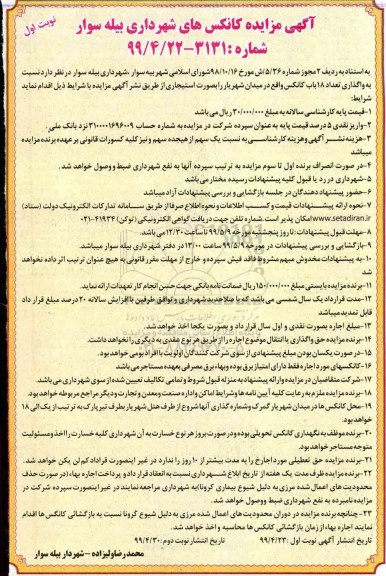 آگهی مزایده کانکس های شهرداری بیله سوار
نوبت اول
شماره :۳۱۳۱-۹۹/۴/۲۲
به استناد به ردیف ۲ مجوز شماره ۵/۳۶/ش مورخ ۹۸/۱۰/۱۶ شورای اسلامی شهر بیله سوار ،شهرداری بیله سوار در نظر دارد نسبت
به واگذاری تعداد ۱۸ باب کانکس واقع در میدان شهریار را بصورت استیجاری از طریق نشر آگهی مزایده با شرایط ذیل اقدام نماید
شرایط:
۱-قیمت پایه کارشناسی سالانه به مبلغ ۳۰/۰۰۰/۰۰۰ ریال می باشد
۲-واریز نقدی ۵ درصد قیمت پایه به عنوان سپرده شرکت در مزایده به شماره حساب ۳۱۰۰۰۰۱۶۹۶۰۰۹ نزد بانک ملی
۳-هزینه نشر آگهی وهزینه کارشناسی به نسبت یک سهم از هیجده سهم و نیز کلیه کسورات قانونی بر عهده برنده مزایده
میباشد
۴-در صورت انصراف برنده اول تا سوم مزایده به ترتیب سپرده آنها به نفع شهرداری ضبط و وصول خواهد شد.
۵-شهرداری در رد یا قبول کلیه پیشنهادات رسیده مختار می باشد
۶-حضور پیشنهاد دهندگان در جلسه بازگشایی و بررسی پیشنهادات آزاد میباشد
۷-نحوه ارائه پیشنهادات قیمت و کسب اطلاعات و نحوه اطلاع صرفا از طریق سامانه تدارکات الکترونیک دولت (ستاد)
www.setadiran.ir امکان پذیر است.شماره تلفن جهت دریافت گواهی الکترونیکی (توکن) ۴۱۹۳۴-۰۲۱
۸-مهلت قبول پیشنهادات :تا روز پنجشنبه مورخه ۹۹/۵/۹ تا ساعت ۱۲/۳۰ می باشد
۹-بازگشایی و بررسی پیشنهادات در مورخه ۹۹/۵/۹ ساعت ۱۳/۰۰ در دفتر شهرداری بیله سوار میباشد.
۱۰-به پیشنهادات مخدوش مبهم مشروط فاقد فیش سپرده و خارج از مهلت مقرر قانونی به هیچ عنوان ترتیب اثر داده نخواهد
شد
۱۱-برنده مزایده بایستی مبلغ ۱۵۰/۰۰۰/۰۰۰ ریال ضمانت نامه بانکی جهت حسن انجام کار تعهدات ارائه نماید.
۱۲-مدت قرارداد یک سال شمسی می باشد که با صلاحدید شهرداری و توافق طرفین با افزایش سالانه ۲۰ درصد مبلغ قرار داد
قابل تمدید میباشد
۱۳-مبلغ اجاره بصورت نقدی و اول سال قرار داد و بصورت یکجا اخذ خواهد شد.
۱۴-برنده مزایده حق واگذاری یا انتقال موضوع اجاره را از طریق هر نوع عقدی به دیگری را نخواهد داشت.
۱۵-در صورت یکسان بودن مبلغ پیشنهادی از سوی شرکت کنندگان اولویت با افراد بومی خواهد بود.
۱۶-کانکسهای مورد اجاره فقط دارای امتیاز برق بوده و بهاء برق مصرفی بعهده مستاجر می باشد
۱۷-شرکت متقاضیان در مزایده و ارائه پیشنهاد به منزله قبول شروط و تمامی تکالیف تعیین شده از سوی شهرداری می باشد.
۱۸-برنده مزایده ملزم به رعایت کلیه آیین نامه ها وشرایط اماکن و اداره صنعت و معدن و تجارت و دیگر مراجع مربوطه خواهد بود.
۱۹-محل کانکس ها در میدان شهریار گمرک و شماره گذاری آنها شروع از طرف هتل شهریار بطرف تیرپارک به ترتیب از یک الی ۱۸
خواهد بود.
۲۰-برنده موظف به نگهداری کانکس تحویلی بوده و در صورت بروز هر نوع خسارت به آن شهرداری کلیه خسارت را اخذ و مسئولیت
متوجه مستاجر خواهد بود.
۲۱-برنده مزایده حق تعطیلی مورد اجاره را به مدت بیشتر از ۱۰ روز را ندارد در غیر اینصورت قرارداد کم لن یکن خواهد شد.
۲۲-برنده مزایده ظرف مدت یک هفته از تاریخ ابلاغ شهرداری نسبت به انعقاد قرار داد و پرداخت اجاره بهاء (در صورت حذف
محدودیت های اعمال شده مرزی به دلیل شیوع بیماری کرونا) به شهرداری مراجعه نمایند در غیر اینصورت سپرده شرکت در
مزایده نامبرده به نفع شهرداری ضبط و وصول خواهد شد.
۲۳-چنانچه برنده مزایده در دوران محدودیت های اعمال شده مرزی به دلیل شیوع کرونا نسبت به بازگشائی کانکس ها اقدام
نمایند اجاره بهاء از زمان بازگشائی کانکس ها محاسبه و اخذ خواهد شد.
تاریخ انتشار آگهی نوبت اول :۹۹/۴/۲۳ تاریخ انتشار نوبت دوم :۹۹/۴/۳۰
محمد رضا ولیزاده – شهردار بیله سوار